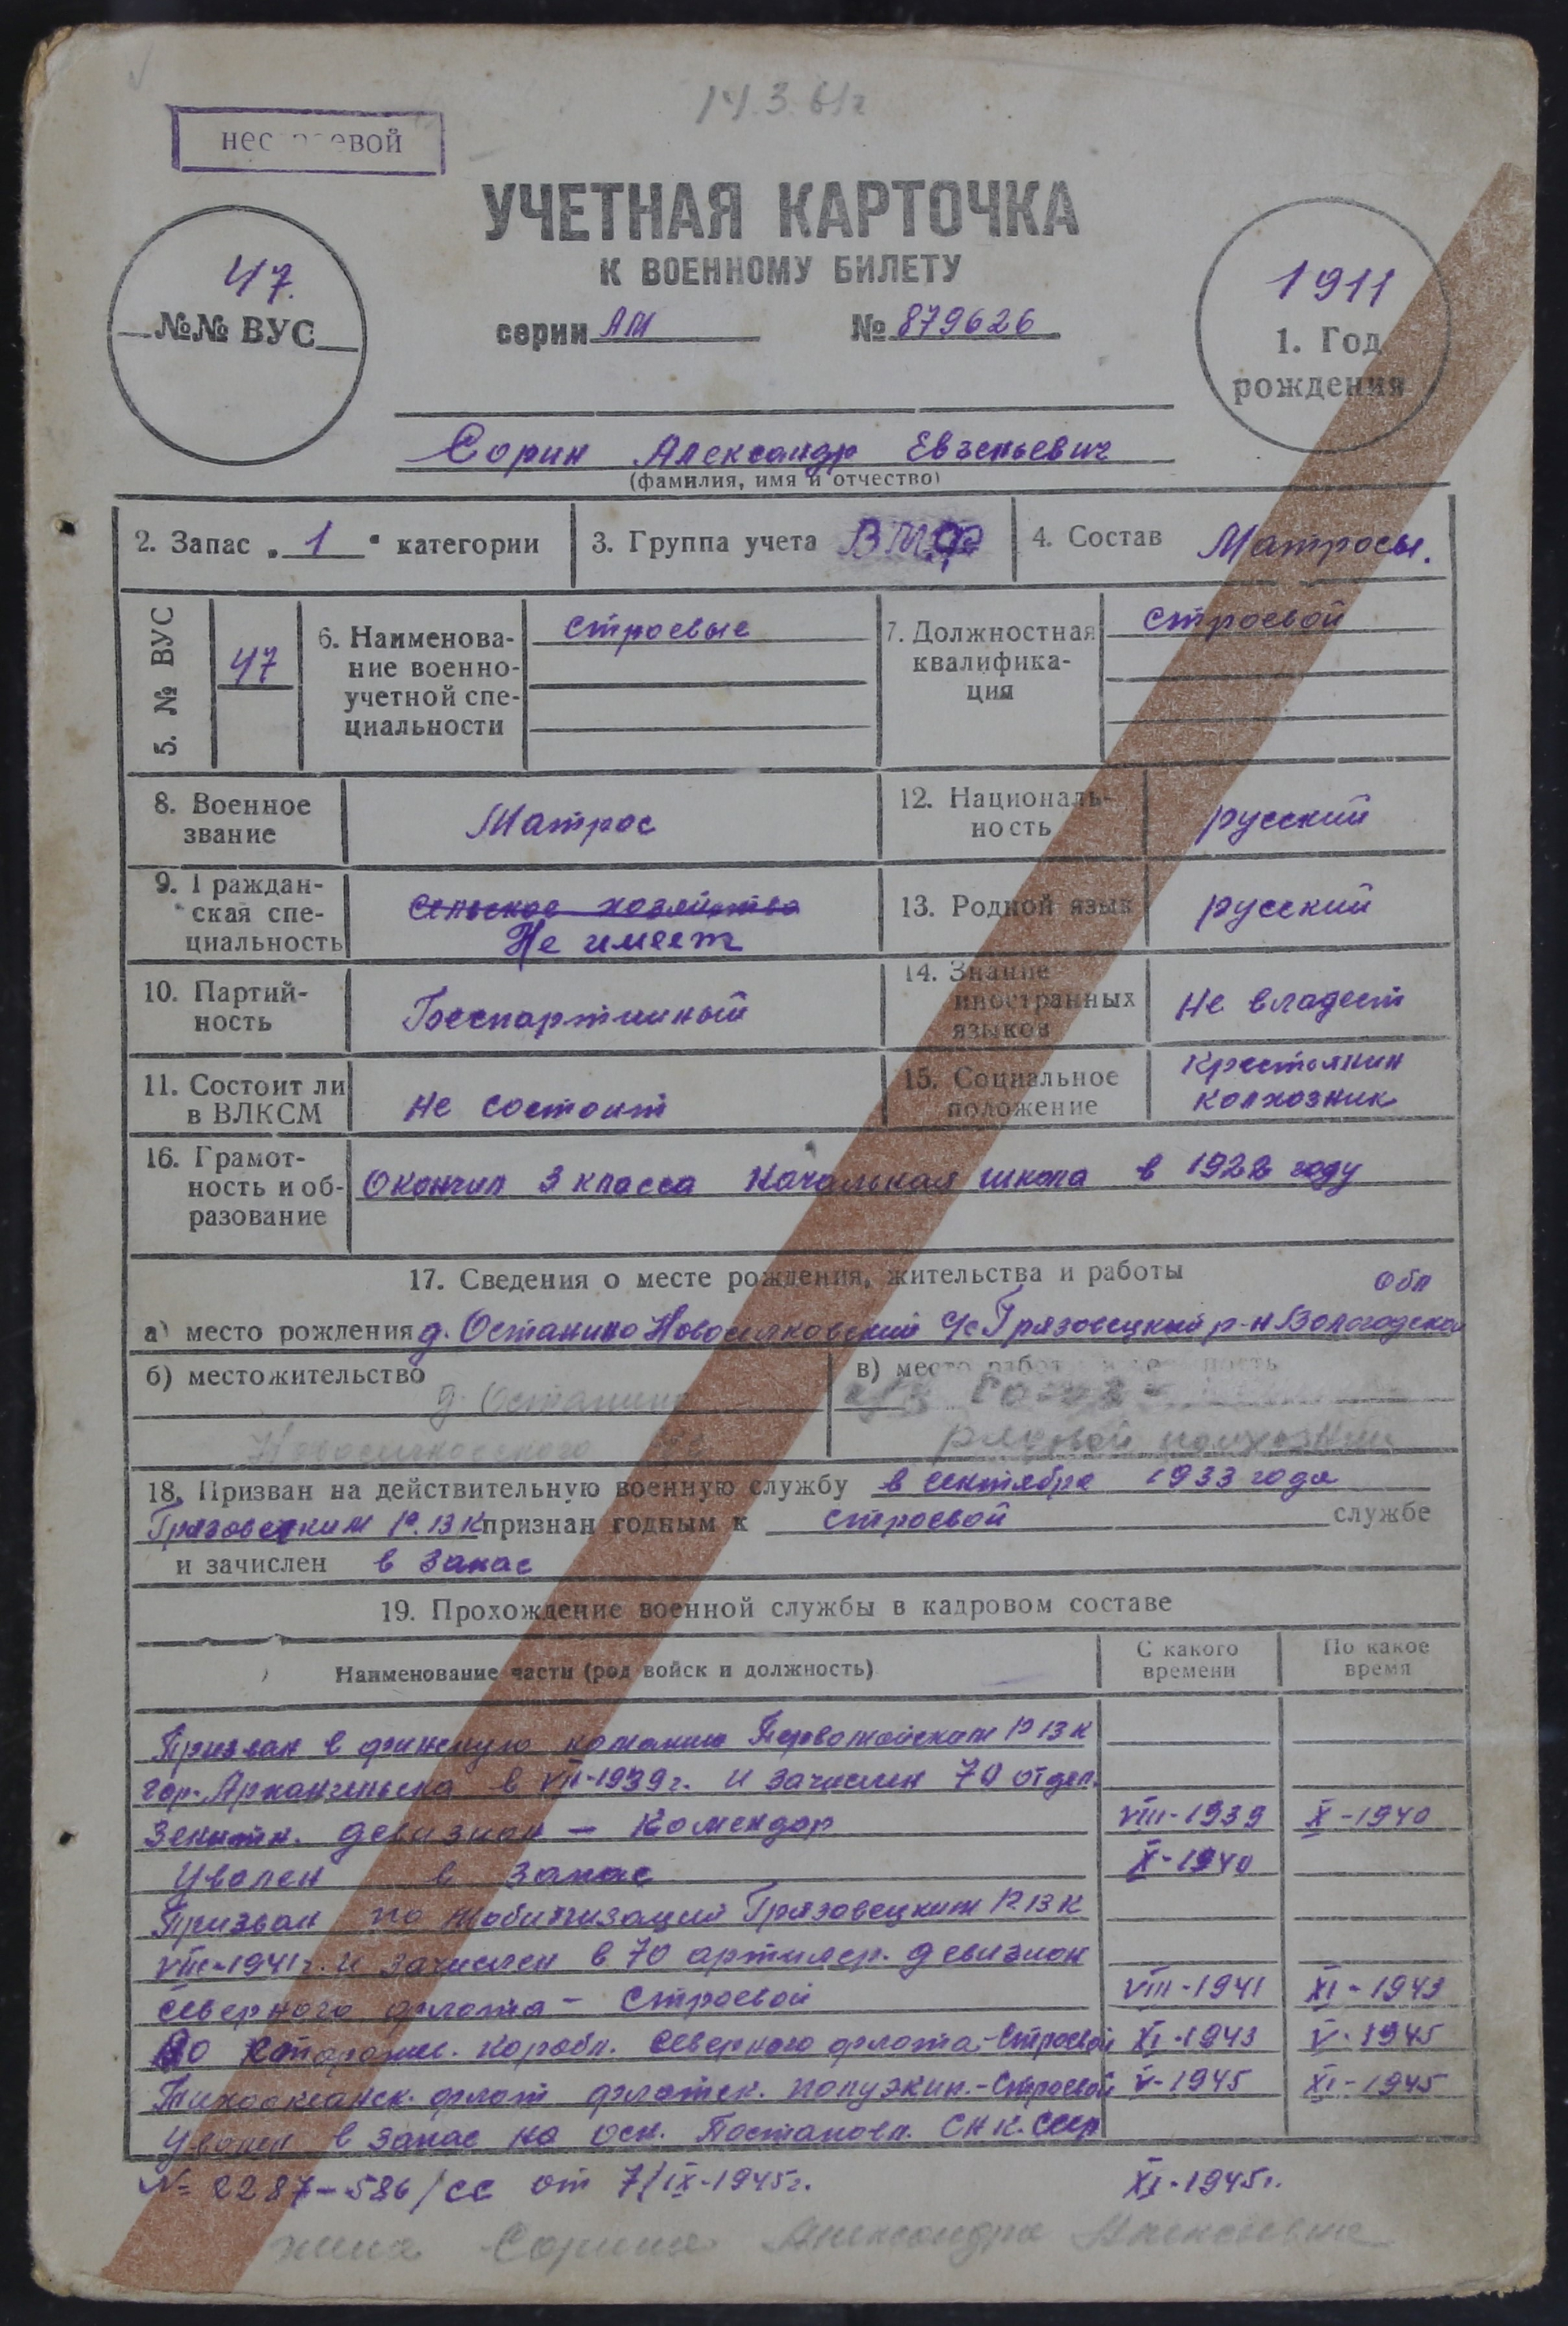 14.3.61г
нес  евой
УЧЕТНАЯ КАРТОЧКА
К ВОЕННОМУ БИЛЕТУ
серии АМ № 879626
47.
№№ ВУС
1911
1. Год
рождения
Сорин Александр Евгеньевич
(фамилия, имя и отчество)
2. Запас „1“ категории
3. Группа учета ВМФ
4. Состав Матросы.
5. № ВУС
47
6. Наименова-
ние военно-
учетной спе-
циальности
строевые
7. Должностная
квалифика-
ция
строевой
8. Военное
звание
Матрос
12. Националь-
ность
русский
9. Граждан-
ская спе-
циальность
сельское хозяйство
Не имеет
13. Родной язык
русский
10. Партий-
ность
Беспартийный
14. Знание
иностранных
языков
не владеет
11. Состоит ли
в ВЛКСМ
не состоит
15. Социальное
положение
крестьянин
колхозник
16. Грамот-
ность и об-
разование
Окончил 3 класса Начальная школа в 1922 году
17. Сведения о месте рождения, жительства и работы
обл
а) место рождения д. Останино Новосилковский с/с Грязовецкий р-н Вологодская
б) местожительство
д. Останино
в) место
рядовой колхозник
18. Призван на действительную военную службу в сентябре 1933 года
Грязовецким РВК признан годным к строевой службе
и зачислен в запас
19. Прохождение военной службы в кадровом составе
Наименование части (род войск и должность)
С какого
времени
По какое
время
Призван в финскую Первомайским РВК
гор. Архангельска в VII-1939г. и зачислен 70 отдел.
зенитн. девизион – Комендор VIII-1939 X-1940
Уволен в запас X-1940
Призван по мобилизаций Грязовецким РВК
VIII-1941г. и зачислен в 70 артилер. девизион
Северного флота – Строевой VIII-1941 XI-1943
корабл. Северного флота – Строевой XI-1943 V-1945
Тихоокеанск. флот флотск. полуэкип. – Строевой V-1945 XI-1945
Уволен в запас на осн. Постановл. СНК. СССР
№ 2287-586/сс от 7/IX-1945г. XI-1945г.
жена Сорина Александра